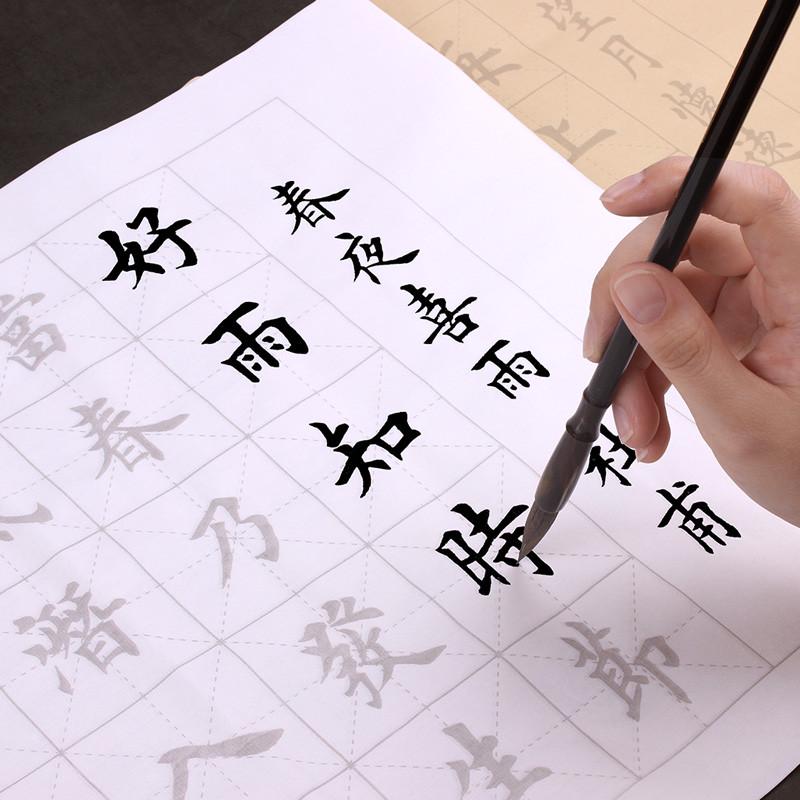 春夜喜雨 杜甫
好雨知時節
當春乃發生
潛入
望月